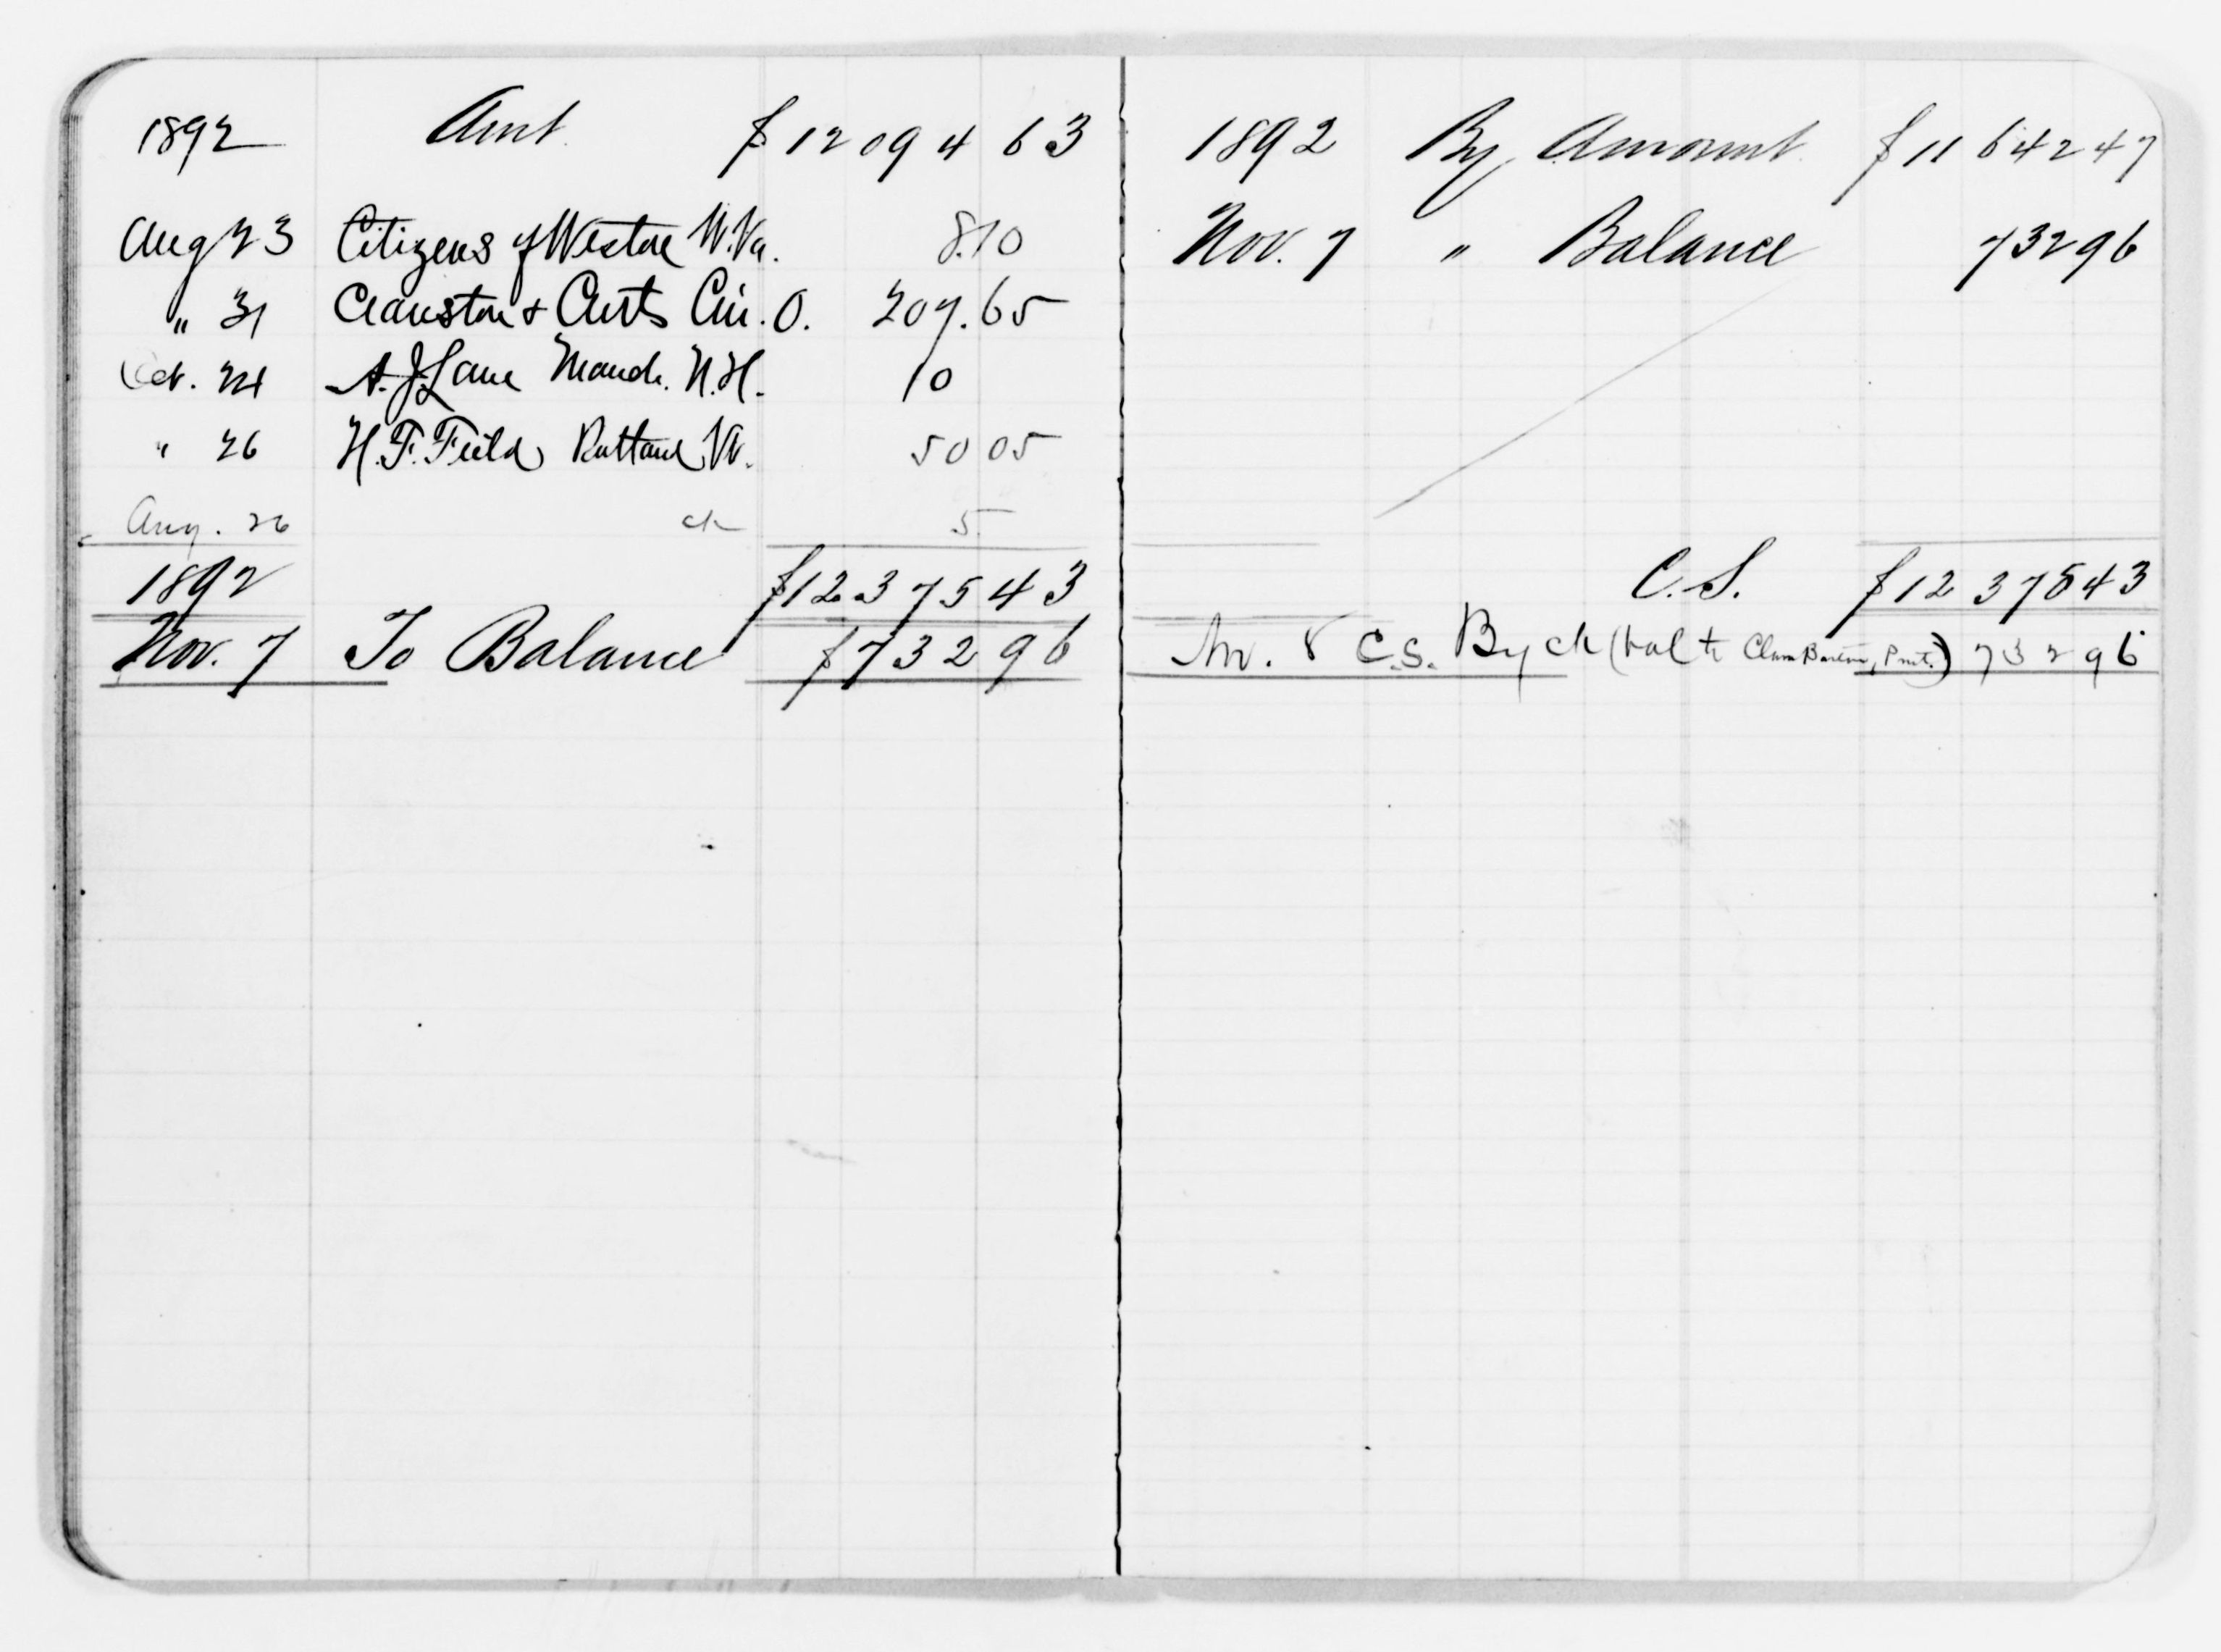 1892 Amt. $12 09 4 63
Aug 23 Citizens of Weston W.Va. 8.10
" 31 & Curts Cin. O. 207.65
Oct. 24 A. J. Lane Manch. N.H. 10
" 26 H. F. Field Rutland Vt. 50 05
Aug. 26 ck 5
1892 $12 3 75 43
Nov. 7 To Balance $7 32 96
1892 By Amount $11 642 47
Nov. 7 " Balance 732 96
C. S. $12 375 43
Nov. 8 C.S. By ck (bal to Clara Barton, Prest.) 732 96